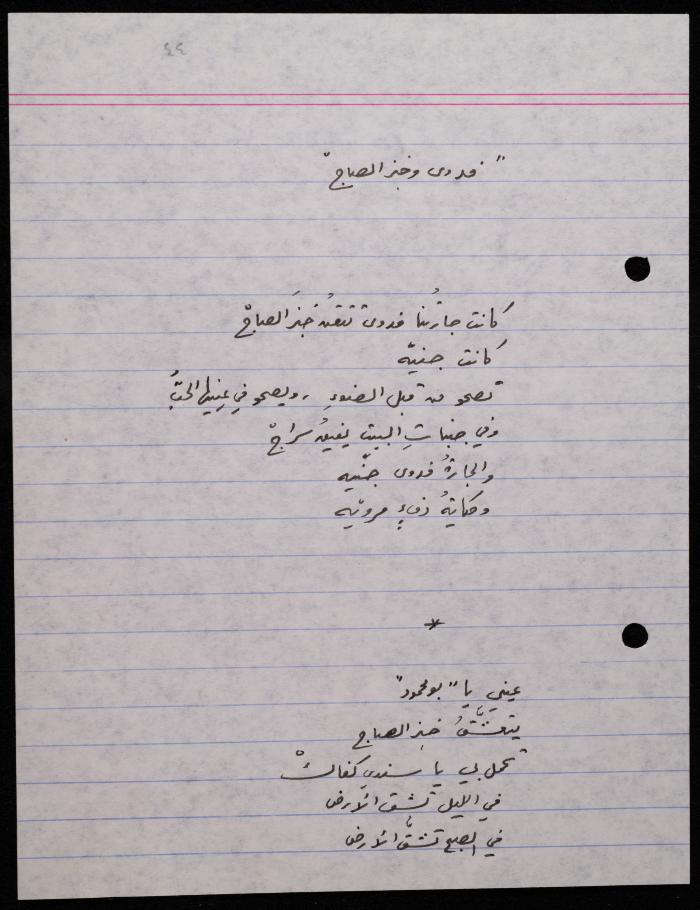 ٤٤
" فدوى وخبز الصاج "
كانت جارتُنا فدوى تتقنُ خبزَ الصاجْ
كانت جنيّه
تصحو من قبل الضوءِ ، ويصحو في عينيها الحبُّ
وفي جنباتِ البيت يفيقُ سراجْ
والجارةُ فدوى جنّيه
وحكايةُ دفءٍ مرويّه
*
عيني يا "بو محمود"
يتعشّقُ خبز الصاج
تحمل لي يا سندي كفاكْ
في الليل تشق الأرض
في الصبح تشقُّ الأرض